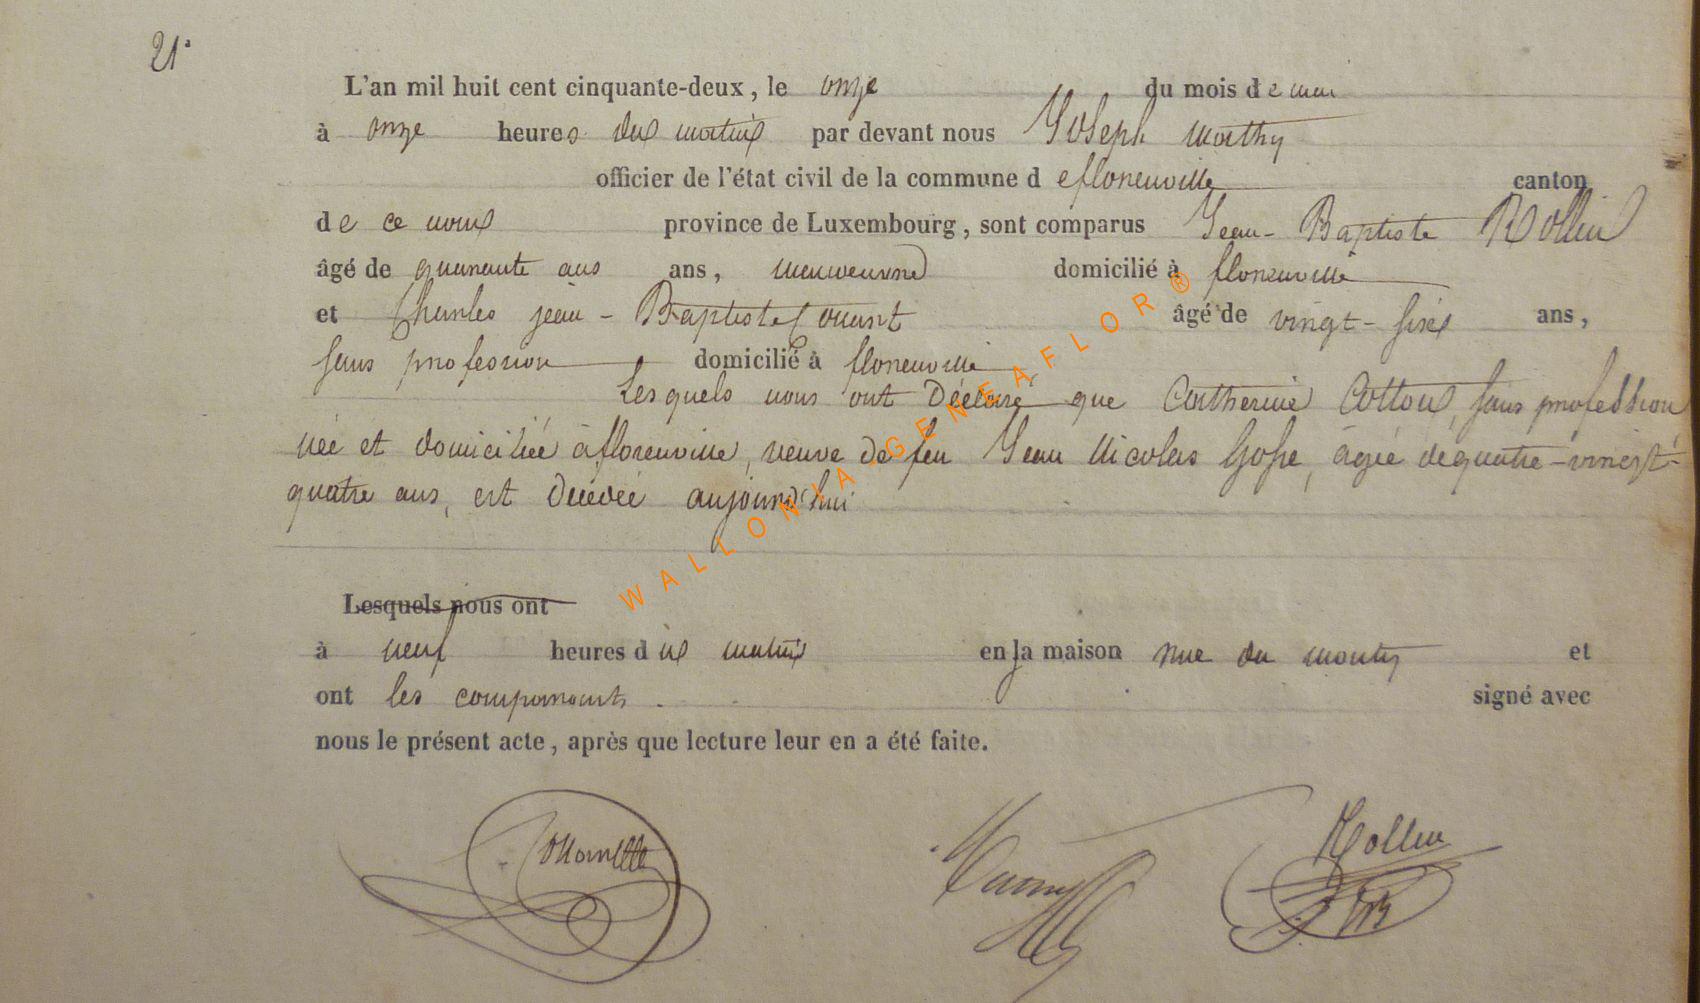 21.
L'an mil huit cent cinquante-deux, le onze du mois de mai
à onze heures du matin par devant nous Joseph mathy
officier de l'état civil de la commune de florenville canton
de ce nom province de Luxembourg, sont comparus Jean-Baptiste Rollin
âgé de quarante ans ans, domicilié à florenville
et Charles jean-Baptiste âgé de vingt-six ans,
sans profession domicilié à florenville
Lesquels nous ont Déclaré que Catherine Colton, sans profession
née et domiciliée à florenville, veuve de feu Jean Nicolas Goffe, âgée de quatre-vingt-
quatre ans, est décédée aujourd'hui
Lesquels nous ont
à neuf heures du matin en la maison rue du monty et
ont les comparants. signé avec
nous le présent acte, après que lecture leur en a été faite.
Rollin
WALLONIA-GENEAFLOR®